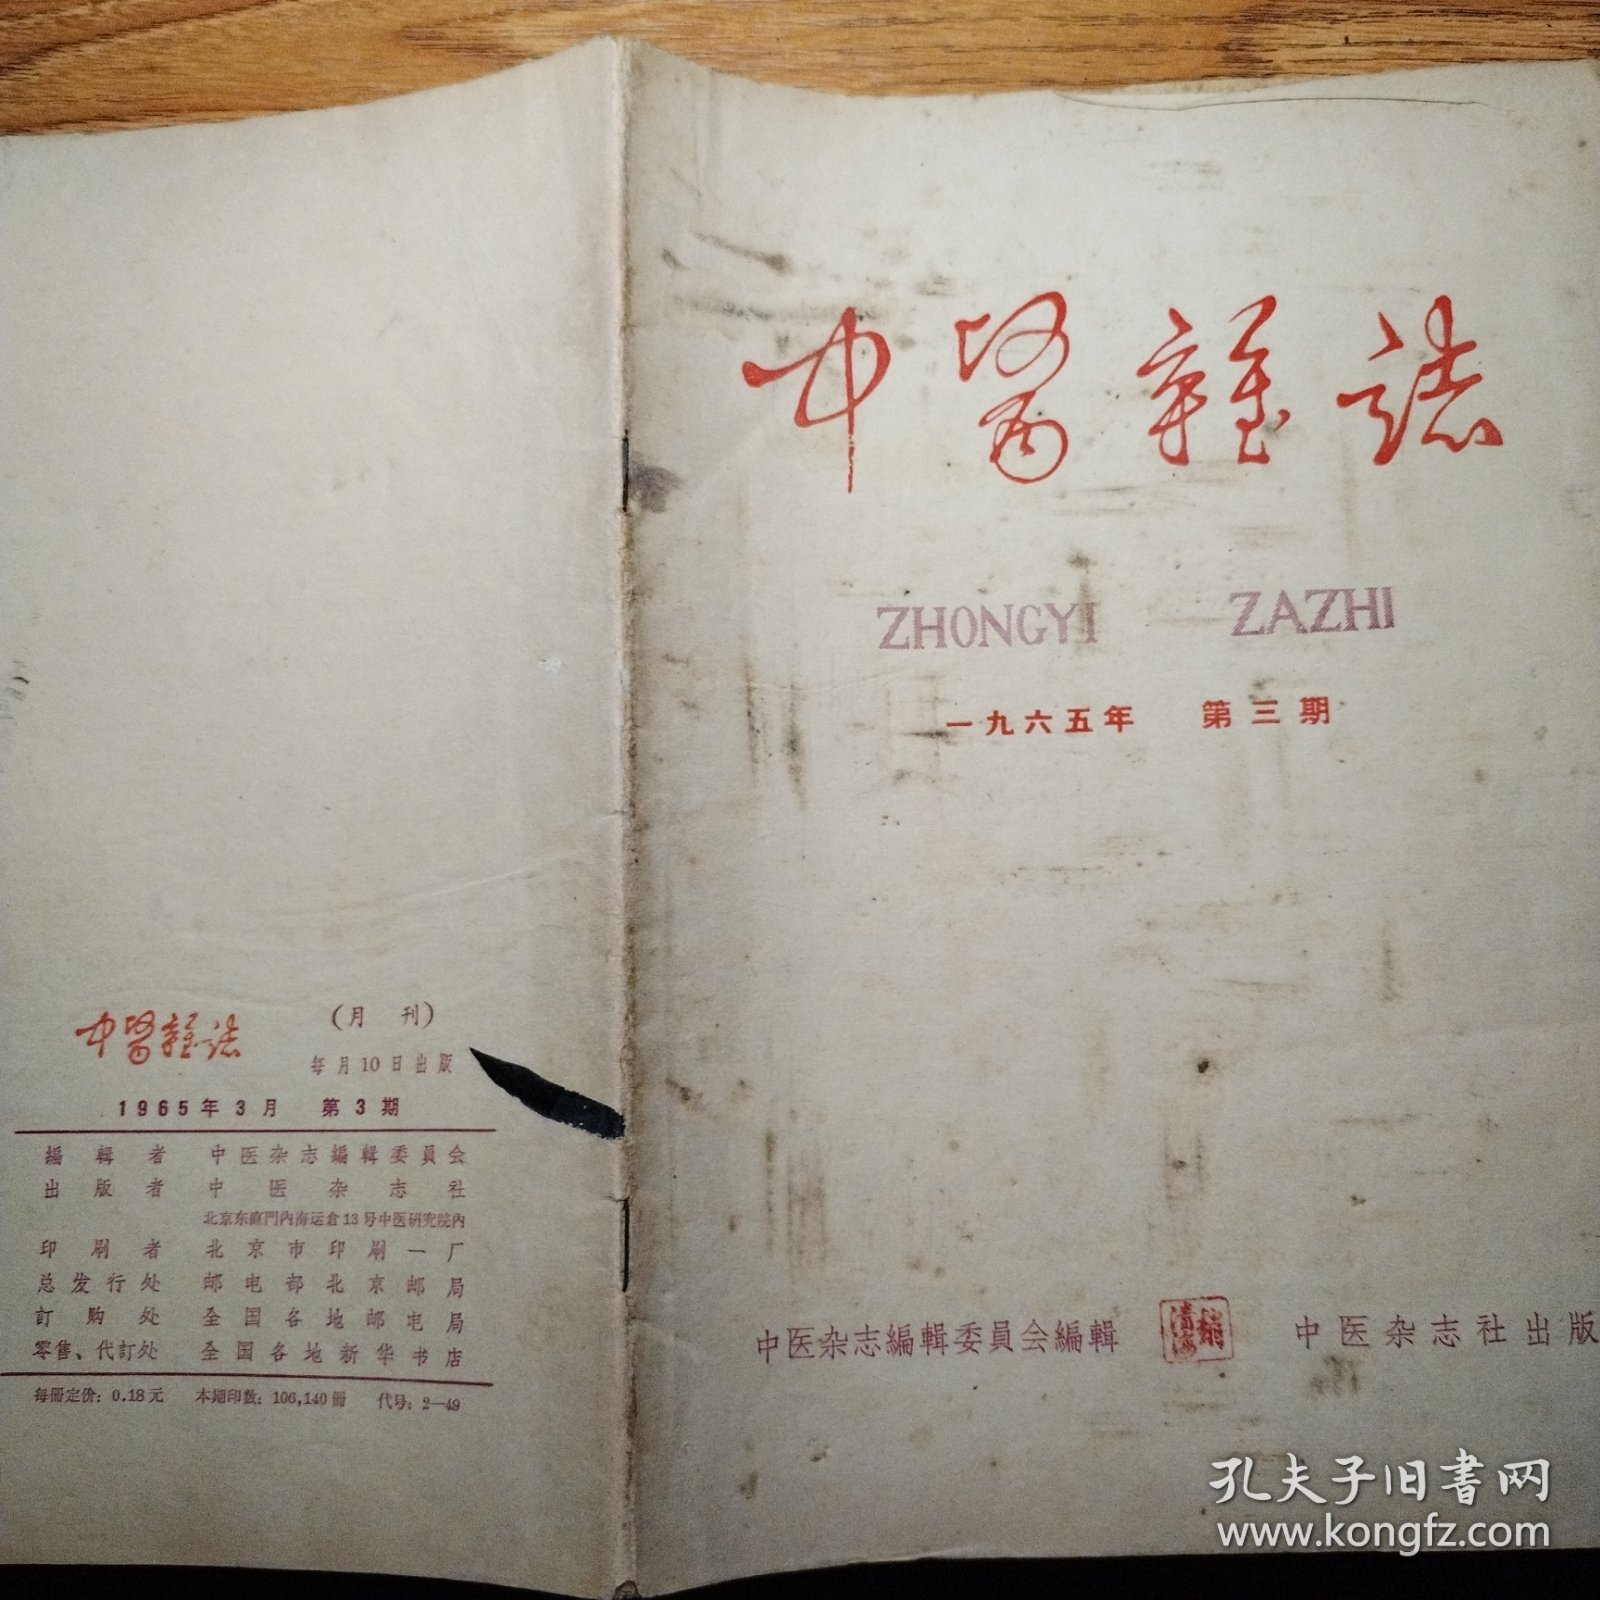 中醫雜誌
ZHONGYI ZAZHI
一九六五年 第三期
中医杂志編輯委員会編輯 中医杂志社出版
中醫雜誌 (月刊)
每月10日出版
1965年3月 第3期
編輯者 中医杂志編輯委員会
出版者 中医杂志社
北京东直門內海运倉13号中医研究院內
印刷者 北京市印刷一厂
总发行处 邮电部北京邮局
訂购处 全国各地邮电局
零售、代訂处 全国各地新华书店
每册定价：0.18元 本期印数：106,140册 代号：2—49
孔夫子旧書网
www.kongfz.com